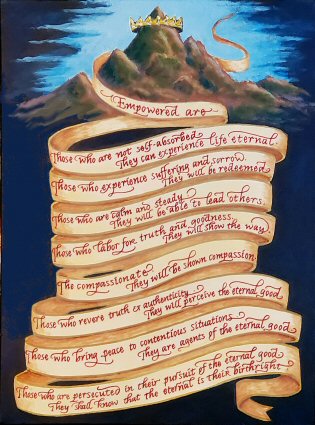 Empowered are
Those who are not self-absorbed
They can experience life eternal.
Those who experience suffering and sorrow.
They will be redeemed
Those who are calm and steady
They will be able to lead others.
Those who labor for truth and goodness
They will show the way.
The compassionate
They will be shown compassion.
Those who revere truth & authenticity
They will perceive the eternal good.
Those who bring peace to contentious situations
They are agents of the eternal good
Those who are persecuted in their pursuit of the eternal good
They shall know that the eternal is their birthright